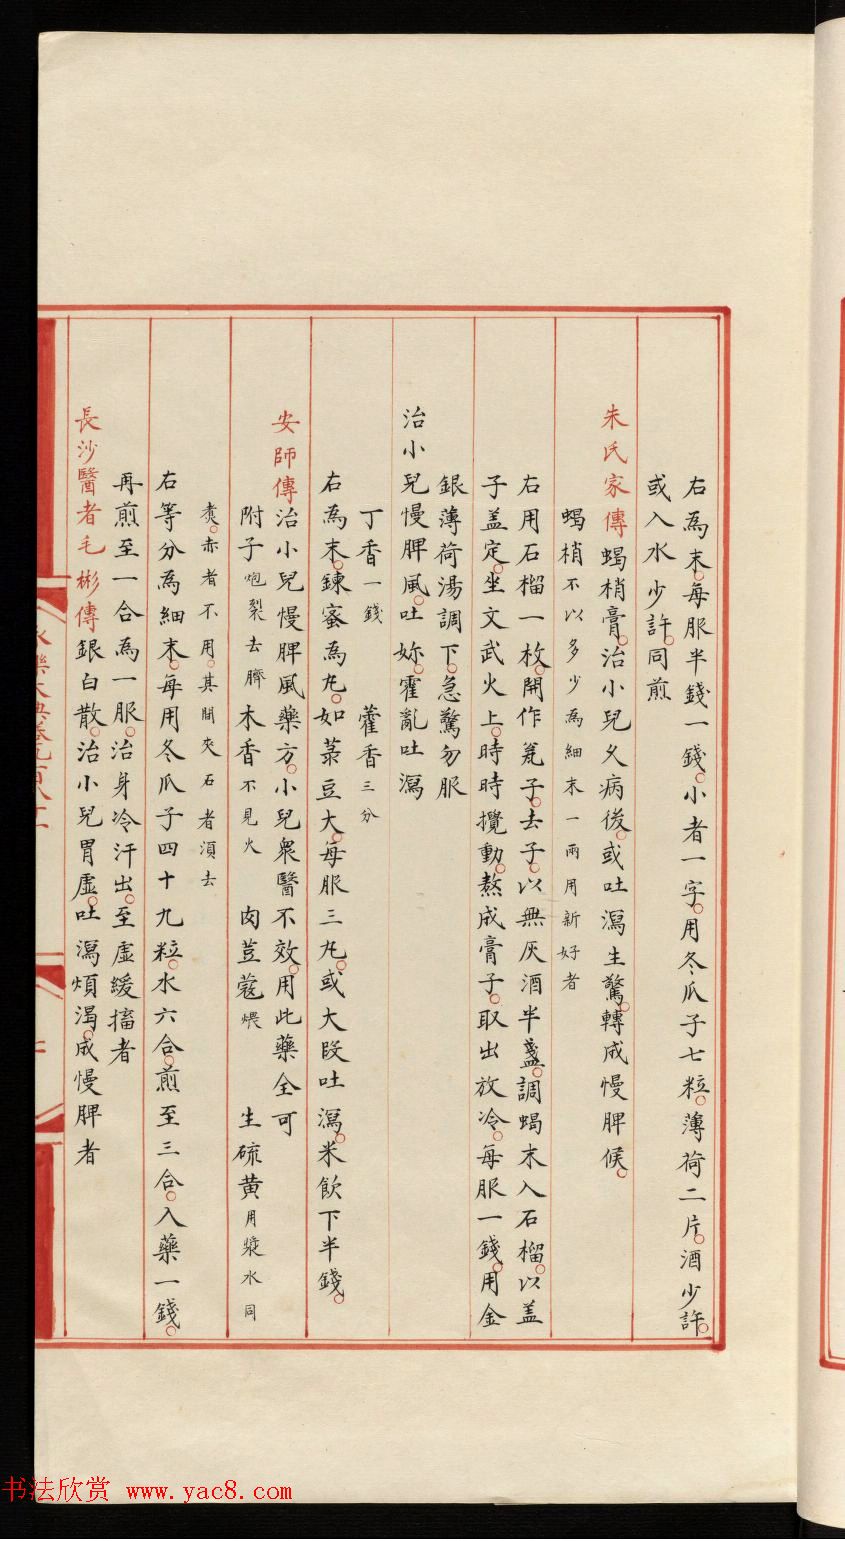 右爲末。每服半錢一錢。小者一字。用冬瓜子七粒。薄荷二片。酒少許。
或入水少許。同煎
朱氏家傳蝎梢膏。治小兒久病後。或吐瀉生驚。轉成慢脾候。
蝎梢不以多少爲細末一兩用新好者
右用石榴一枚。開作瓮子。去子。以無灰酒半盞。調蝎末入石榴。以盖
子盖定。坐文武火上。時時攪動。熬成膏子。取出放冷。每服一錢。用金
銀薄荷湯調下。急驚勿服
治小兒慢脾風。吐妳。霍亂吐瀉
丁香一錢 藿香三分
右爲末。鍊蜜爲丸。如菉豆大。每服三丸。或大段吐瀉。米飲下半錢。
安師傳治小兒慢脾風藥方。小兒衆醫不效。用此藥全可
附子炮裂去臍 木香不見火 肉荳蔻煨 生硫黄用漿水同
煑。赤者不用。其間夾石者湏去
右等分爲細末。每用冬瓜子四十九粒。水六合。煎至三合。入藥一錢。
再煎至一合爲一服。治身冷汗出。至虛緩搐者
長沙醫者毛彬傳銀白散。治小兒胃虛。吐瀉煩渴。成慢脾者
永樂大典卷九百八十一
书法欣赏 www.yac8.com